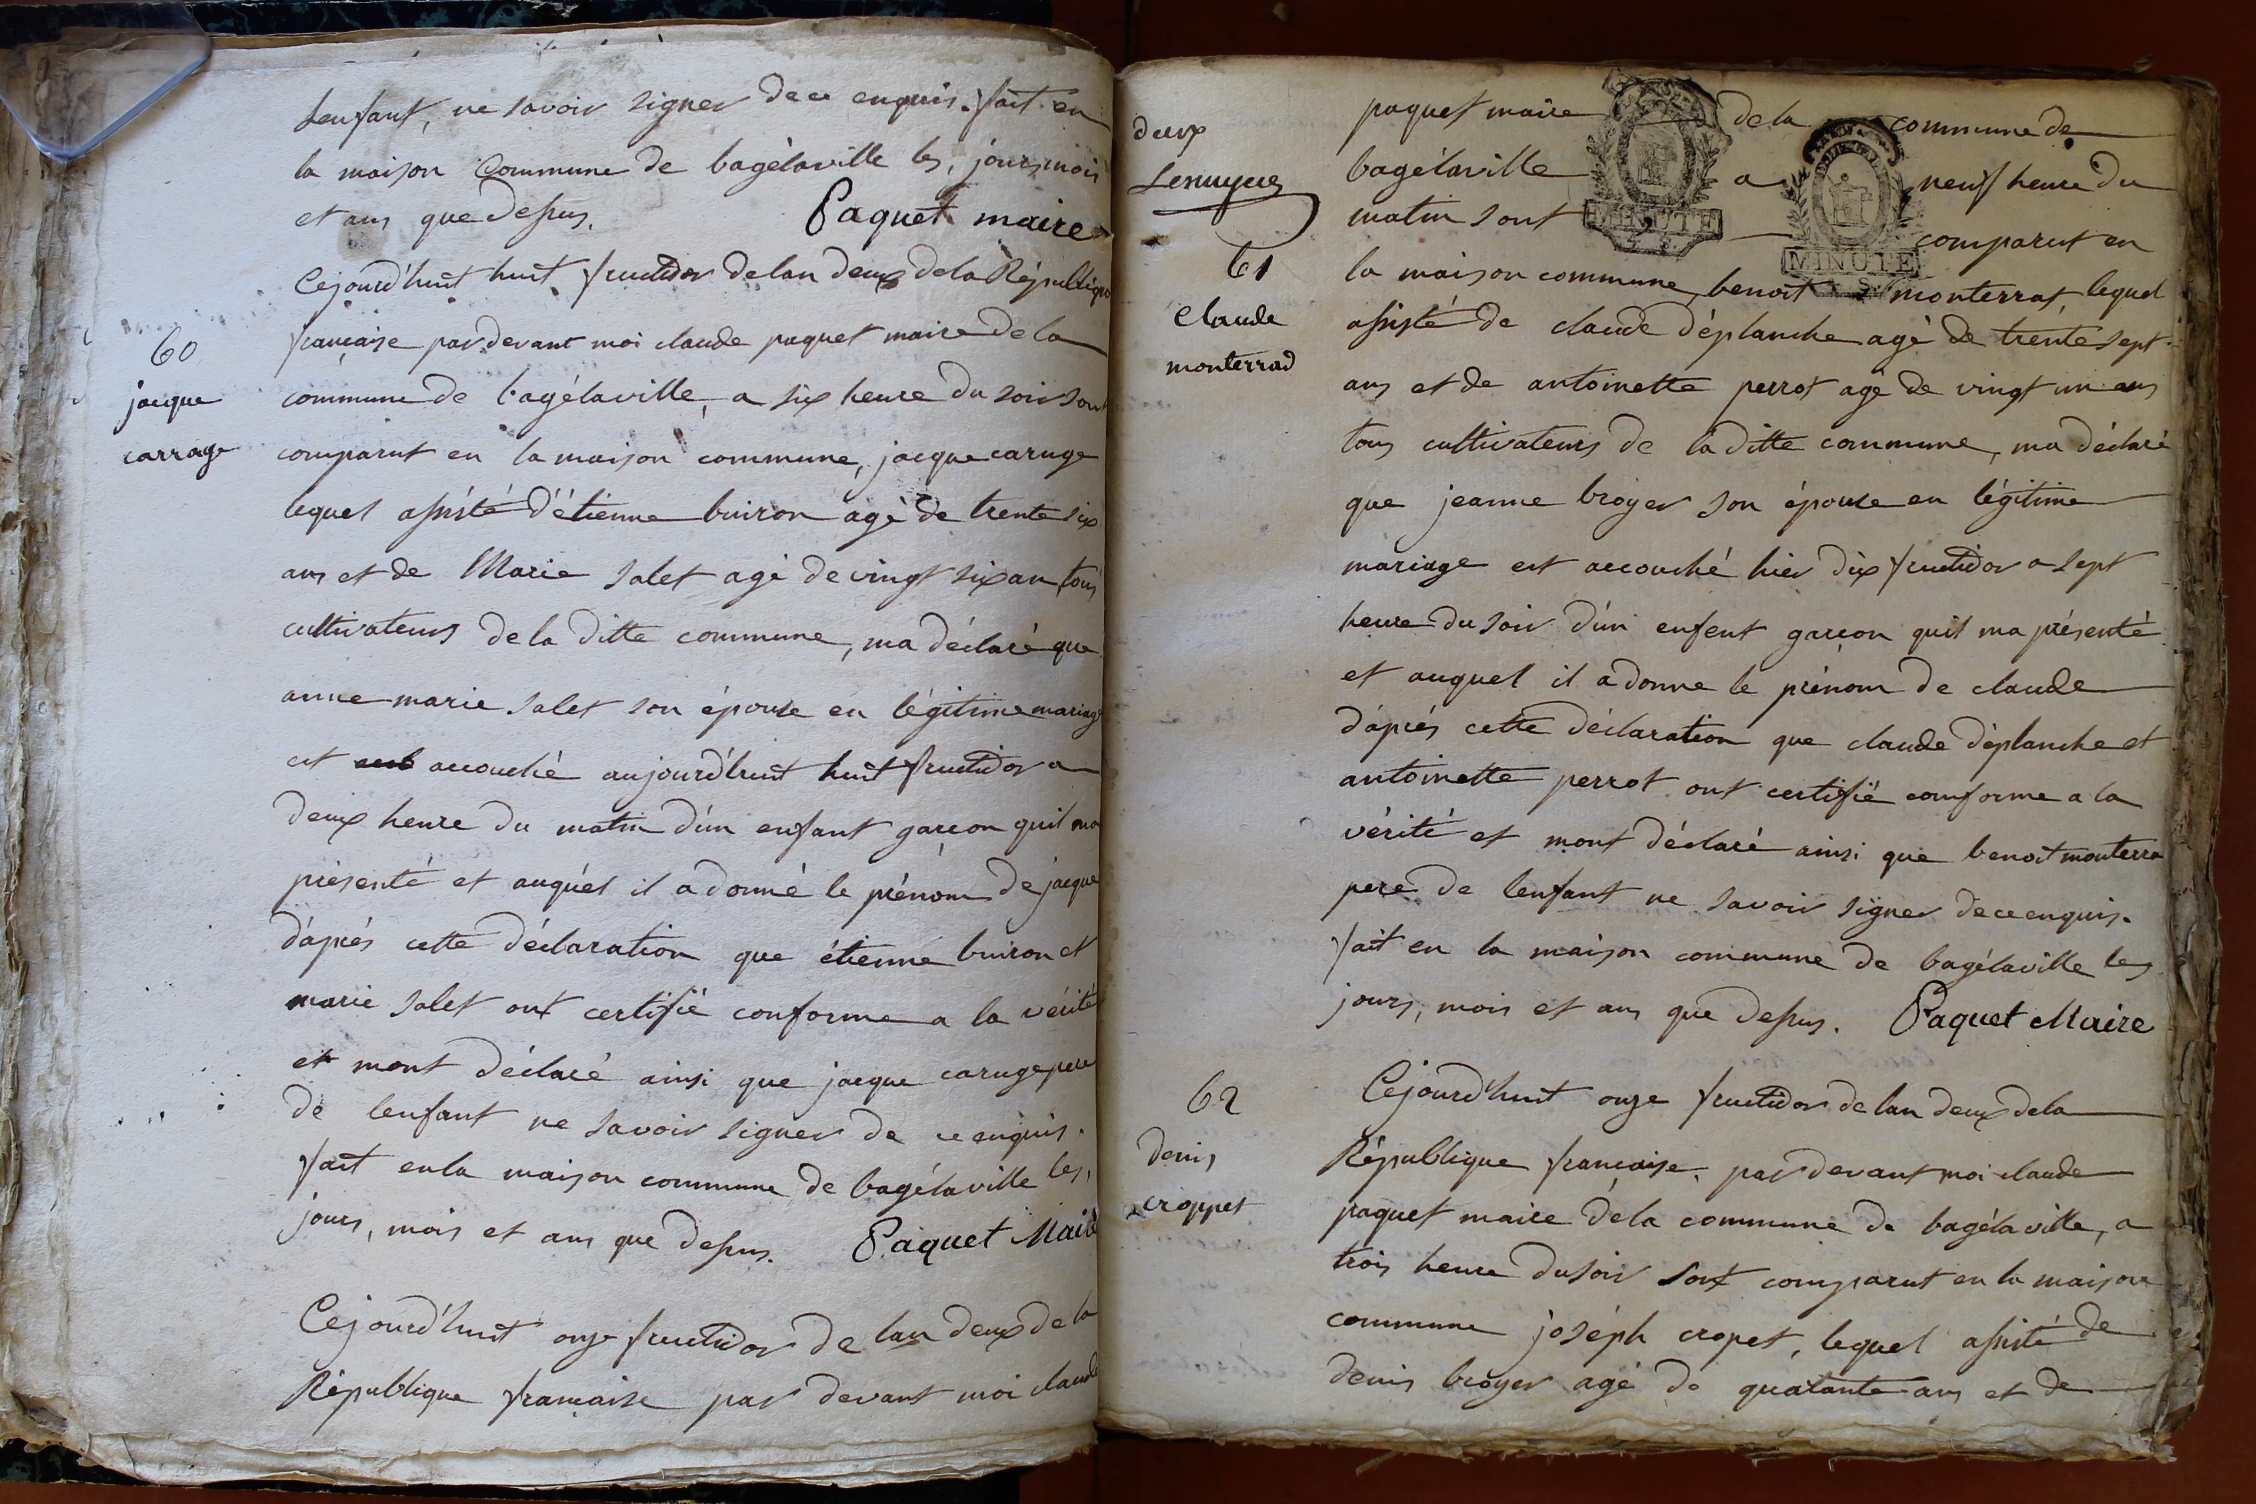 Lenfant, ne savoir signer de ce enquis. fait en
la maison Commune de bagélaville les, jours, mois
et ans que dessus. Paquet maire
Cejourd'huit huit fructidor de lan deux de la Républiqu
60
jacque
carrage
francaise par devant moi claude paquet maire de la
commune de bagélaville, a six heure du soir sont
comparut en la maison commune, jacque caruge
lequel assisté d'étienne buiron agé de trente six
ans et de Marie salet agé de vingt six an tous
cultivateurs de la ditte commune, ma déclaré que
anne marie salet son épouse en légitime mariage
est accouché aujourd'huit huit fructidor a
deux heure du matin d'un enfant garcon quil ma
présenté et auquel il a donné le prénom de jacque
d'aprés cette déclaration que étienne buiron et
marie salet ont certifié conforme a la vérité
et mont déclaré ainsi que jacque caruge pere
de lenfant ne savoir signer de ce enquis.
fait en la maison commune de bagélaville les,
jours, mois et ans que dessus. Paquet Maire
Cejourd'huit onze fructidor de lan deux de la
République francaise par devant moi claude
deux
61
claude
monterrad
paquet maire de la commune de
bagélaville a neuf heure du
matin sont comparut en
MINUTE
MINUTE
la maison commune, benoit monterrat lequel
assisté de claude déplanche agé de trente sept
ans et de antoinette perrot agé de vingt un ans
tous cultivateurs de la ditte commune, ma déclaré
que jeanne broyer son épouse en légitime
mariage est accouché hier dix fructidor a sept
heure du soir d'un enfent garcon quil ma présenté
et auquel il a donne le prénom de claude
d'aprés cette déclaration que claude déplanche et
antoinette perrot ont certifié comforme a la
vérité et mont déclaré ainsi que benoit monterra
pere de lenfant ne savoir signer de ce enquis.
fait en la maison commune de bagélaville les
jours, mois et ans que dessus. Paquet Maire
62
denis
croppet
Cejourd'huit onze fructidor de lan deux de la
République francaise, par devant moi claude
paquet maire de la commune de bagélaville, a
trois heure du soir sont comparut en la maison
commune joséph cropet, lequel assisté de
denis broyer agé de quatante ans et de